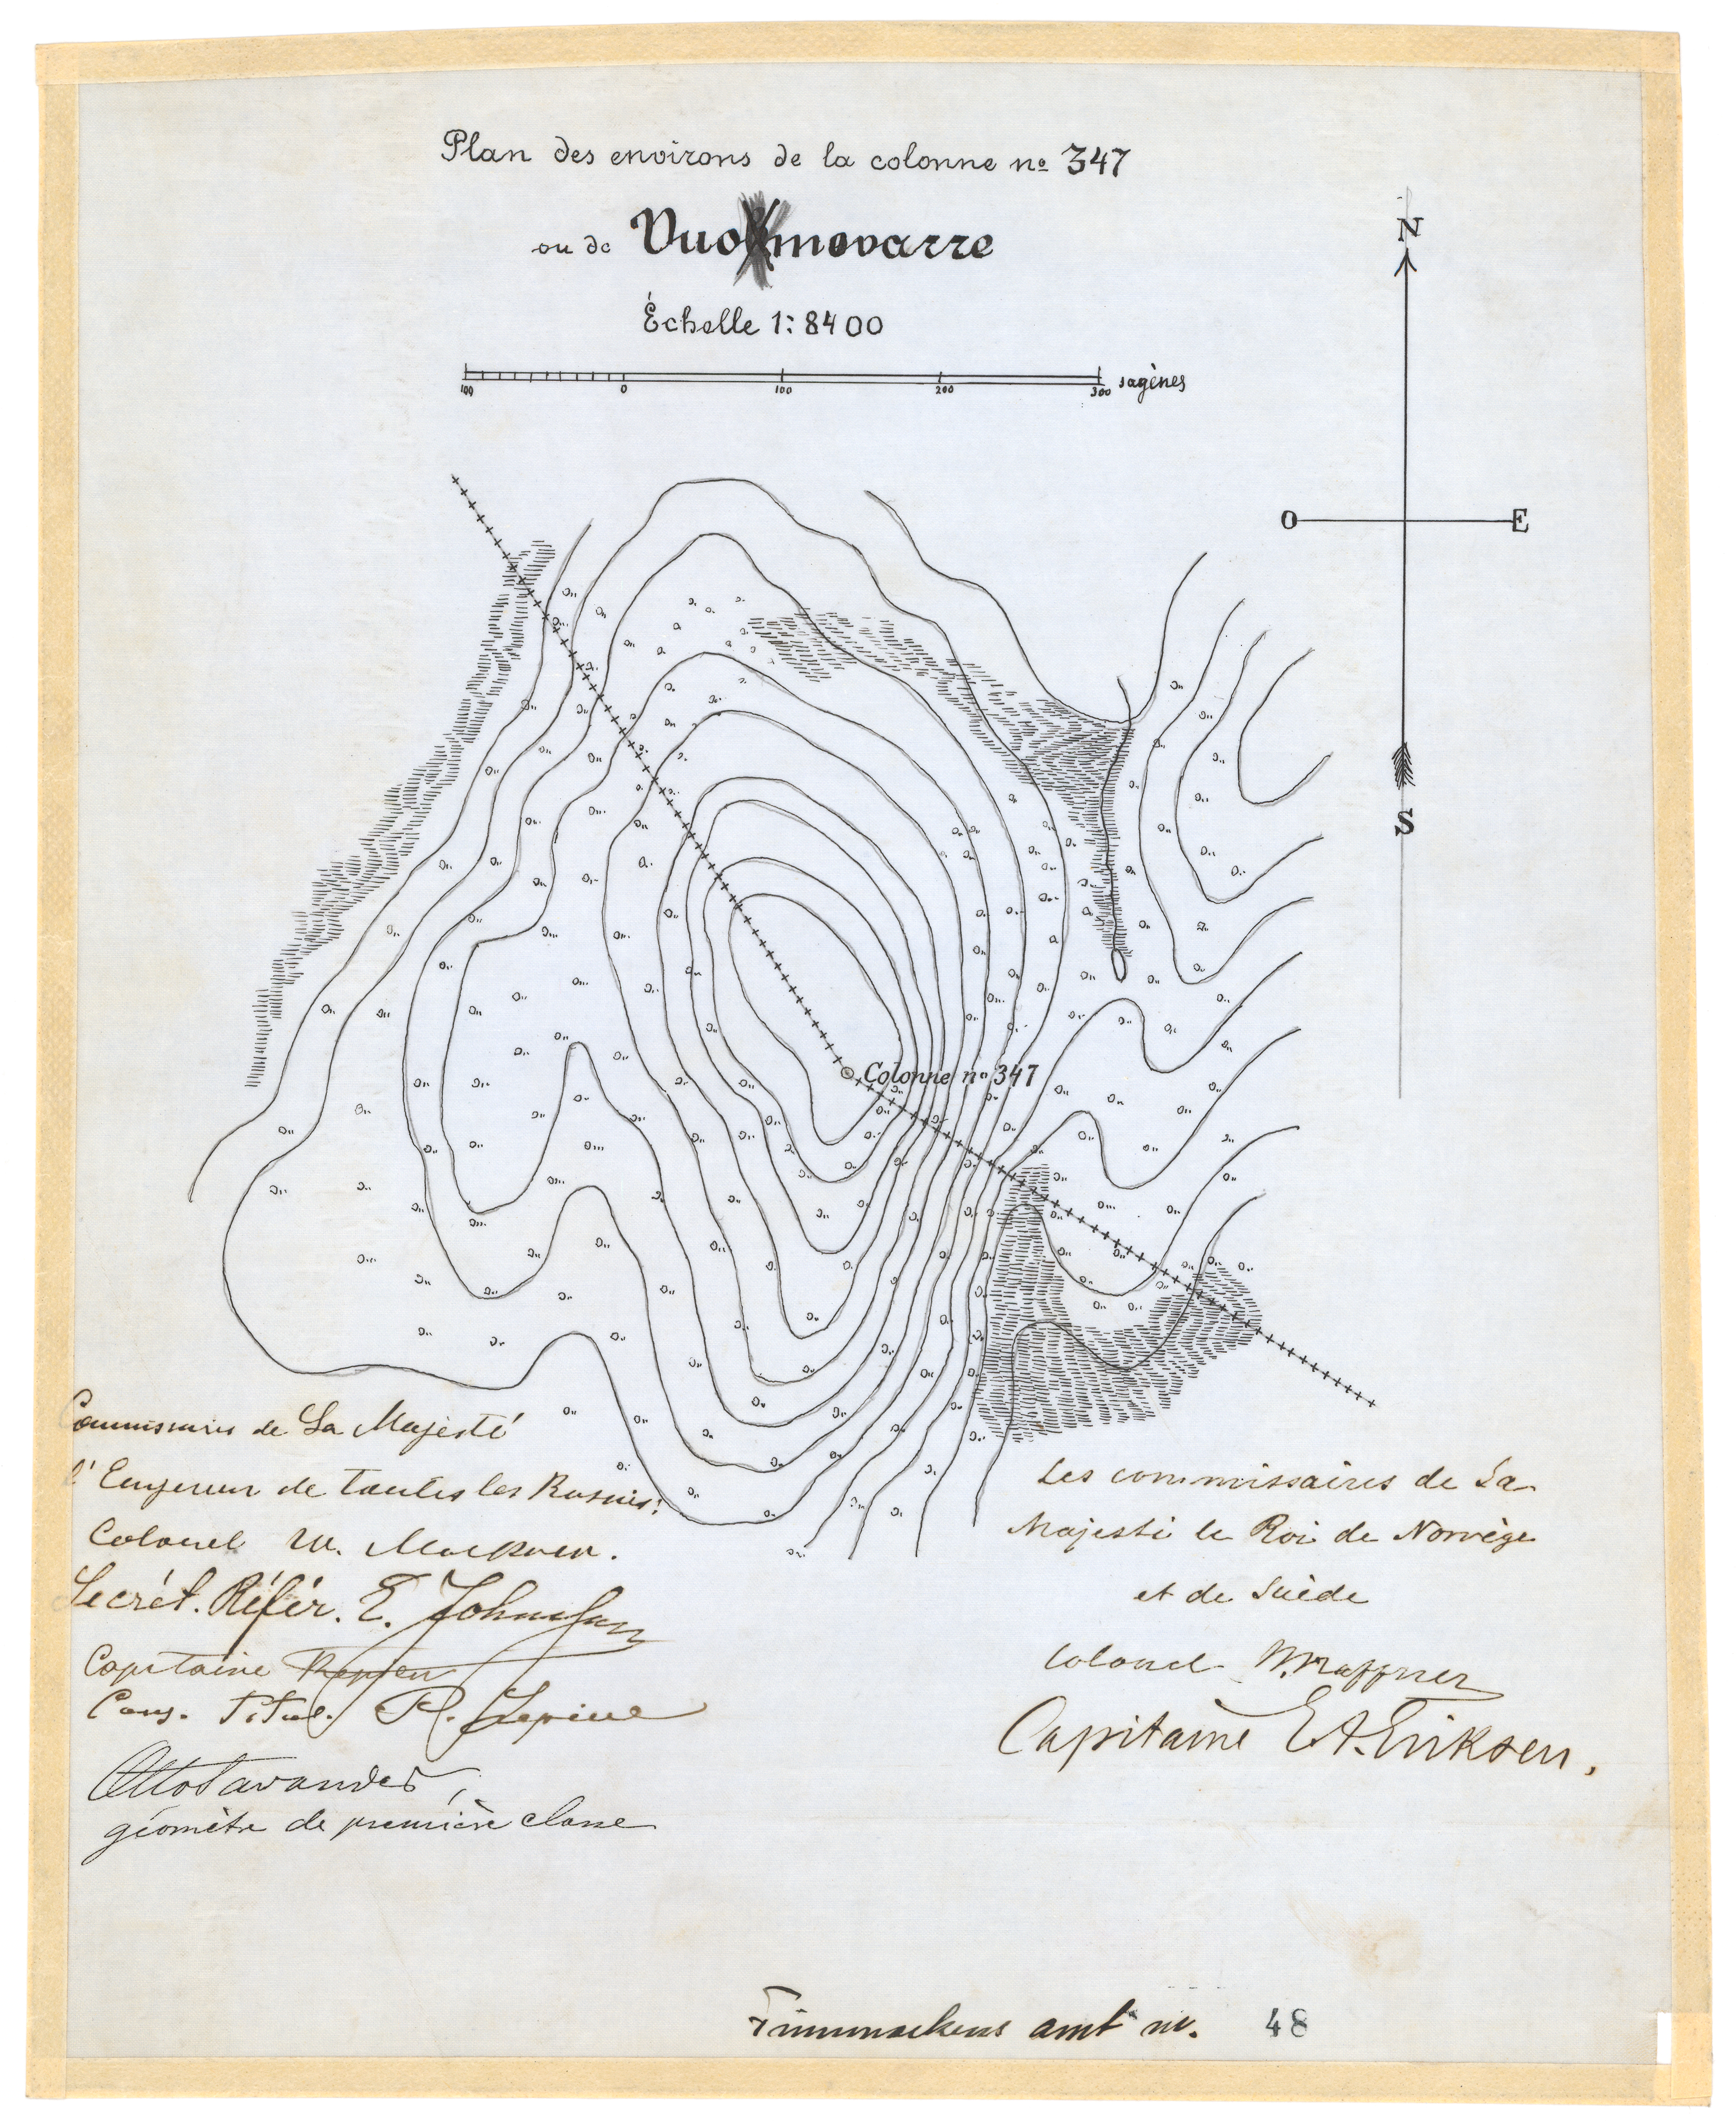 Plan des environs de la colonne no 347
ou de Vuomovarre
Échelle 1:8400
100 0 100 200 300 sagènes
N
O E
S
Colonne no 347
Commissaires de Sa Majesté
l'Empereur de toutes les Russies:
Colonel W.
Secrét. Référ. E. Johnsson
Capitaine
Cons. Titul. R.
Otto Savander,
géomètre de première classe
Les commissaires de Sa
Majesté le Roi de Norvège
et de Suède
Colonel W. Haffner
Capitaine E A. Eriksen,
Finnmarkens amt nr. 48